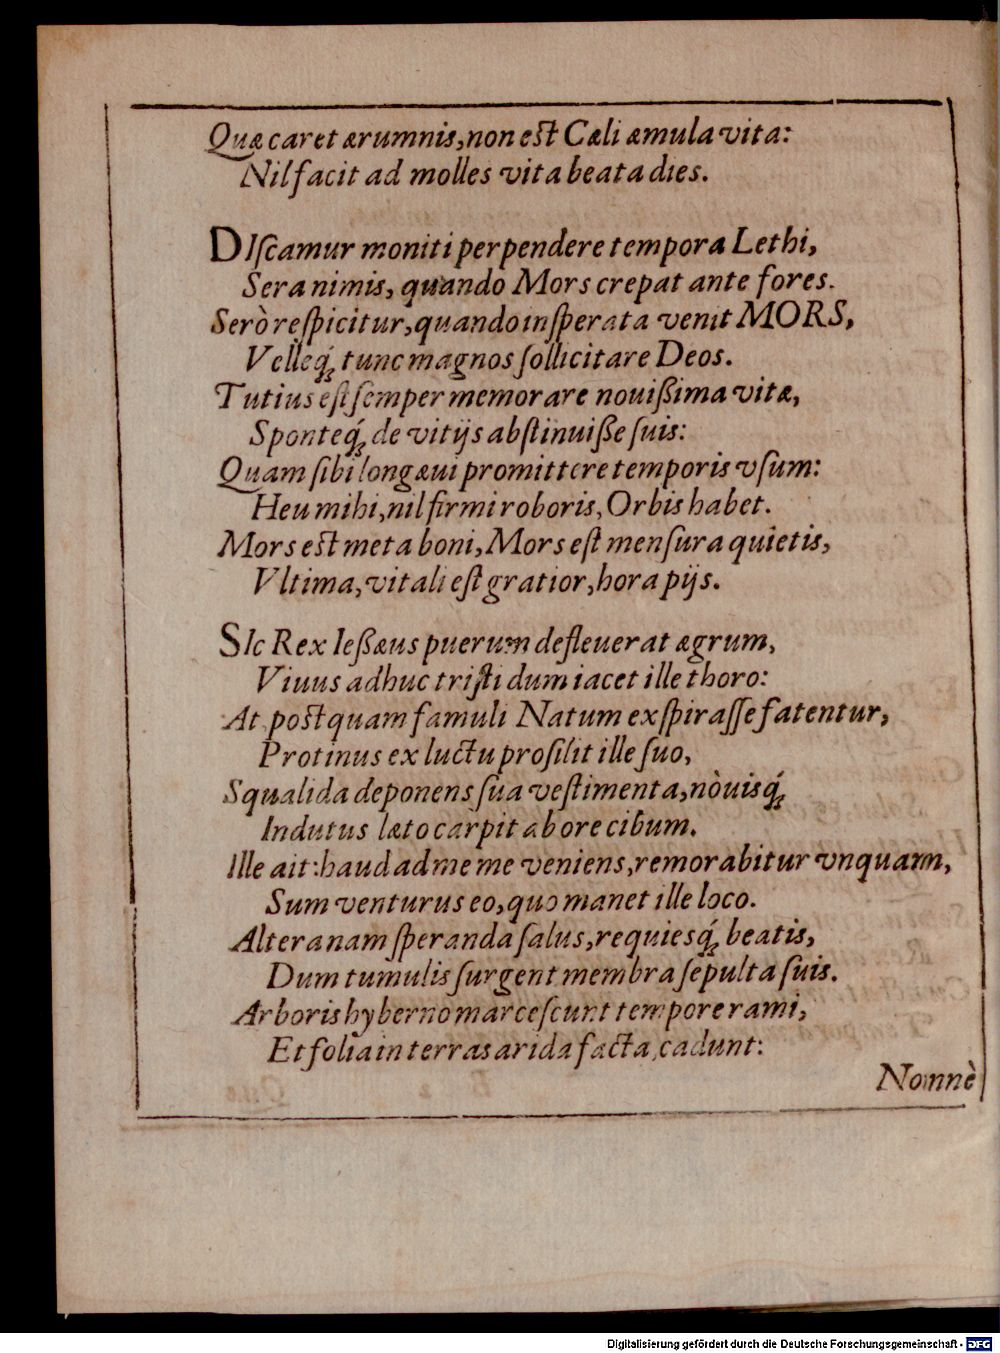 Quæ caret ærumnis, non est Cæli æmula vita:
Nil facit ad molles vita beata dies.
DIſcamur moniti perpendere tempora Lethi,
Sera nimis, quando Mors crepat ante fores.
Serò reſpicitur, quando inſperata venit MORS,
Velleq́; tunc magnos ſollicitare Deos.
Tutius eſt ſemper memorare nouißima vitæ,
Sponteq́; de vitijs abſtinuiße ſuis:
Quam ſibi longæui promittere temporis vſum:
Heu mihi, nil firmi roboris, Orbis habet.
Mors est meta boni, Mors eſt menſura quietis,
Vltima, vitali eſt gratior, hora pijs.
SIc Rex Ießæus puerum defleuerat ægrum,
Viuus adhuc triſti dum iacet ille thoro:
At postquam famuli Natum exſpiraſſe fatentur,
Protinus ex luctu proſilit ille ſuo,
Squalida deponens ſua veſtimenta, nòuisq́;
Indutus læto carpit ab ore cibum.
Ille ait: haud ad me me veniens, remorabitur vnquam,
Sum venturus eo, quo manet ille loco.
Altera nam ſperanda ſalus, requiesq́; beatis,
Dum tumulis ſurgent membra ſepulta ſuis.
Arboris hyberno marceſcunt tempore rami,
Et folia in terras arida facta, cadunt:
Nonnè
Digitalisierung gefördert durch die Deutsche Forschungsgemeinschaft - DFG